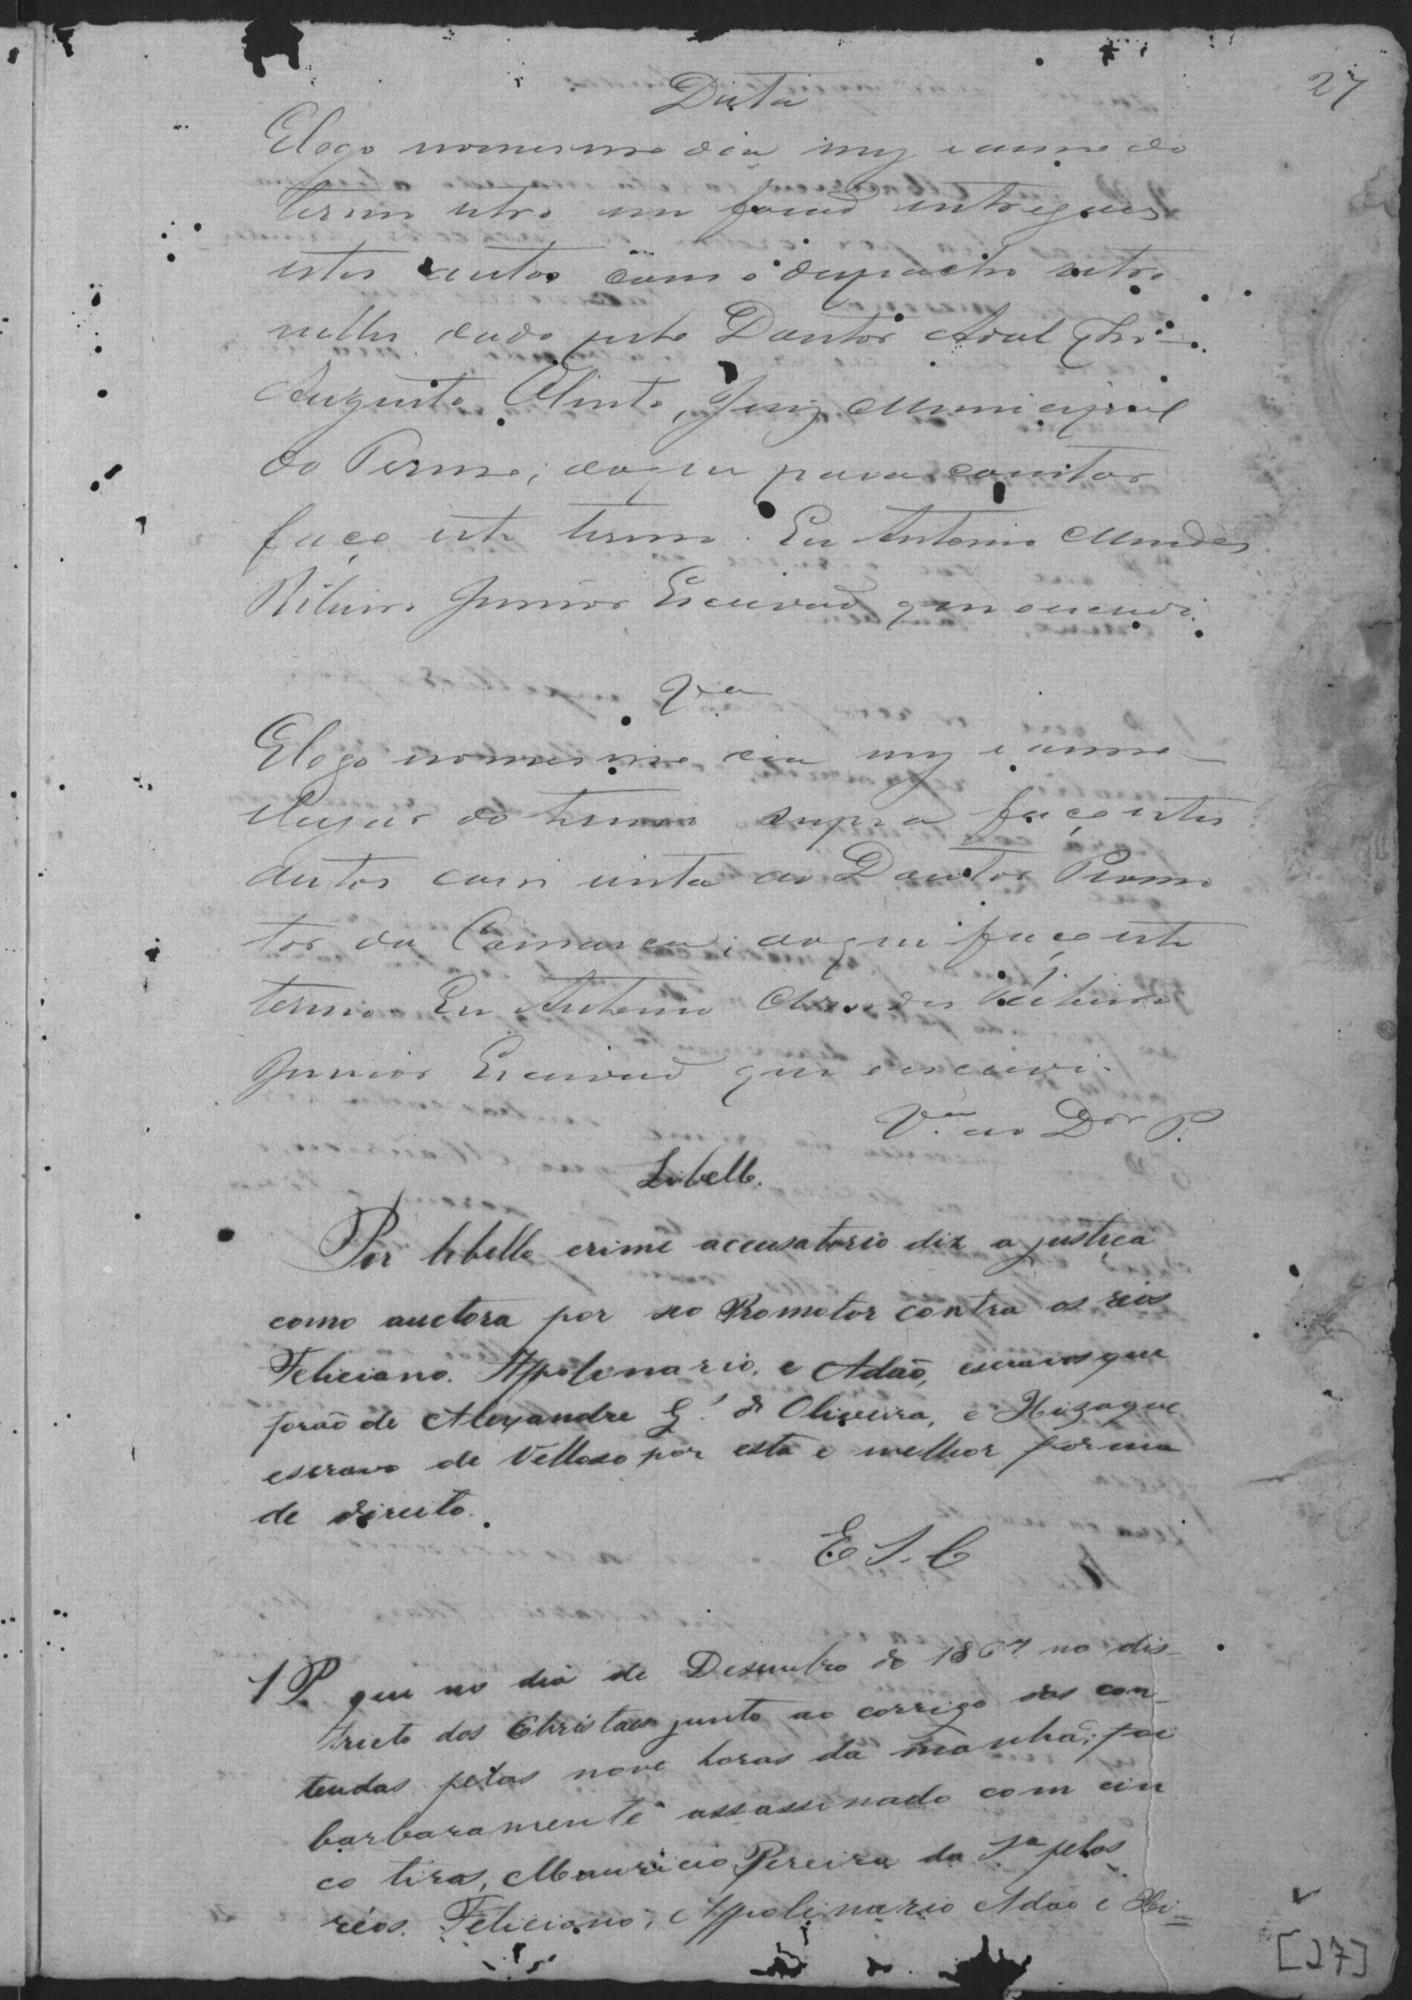 27
Data
E logo no mesmo dia mez e anno do
termo retro me forão entregues
estes autos com o despacho retro
nelles dado pelo Doutor
Augusto Olinto, Juiz Municipal
do Termo; do que para constar
faço este termo. Eu Antonio Mendes
Ribeiro Junior Escrivão que escrevi.
V.ta
E logo no mesmo dia mez e anno
e lugar do termo supra faço estes
autos com vista ao Doutor Promo
tor da Comarca; do que faço este
termo. Eu Antonio Mendes Ribeiro
Junior Escrivão que escrevi.
V.ta ao Dor P.
Libello.
Por libello crime accusatorio diz a justiça
como auctora por seo Promotor contra os réos
Feliciano. Appolinario, e Adão, escravos que
forão de Alexandre G. de Oliveira, e Hizaque
escravo de Velloso por esta e melhor forma
de direito.
E S. C
1 P. que no dia de Desembro de 1867 no dis-
tricto dos Christaes junto ao corrigo das con-
tendas pelas nove horas da manhã; foi
barbaramente assassinado com cin
co tiros, Mauricio Pereira da Sa pelos
réos. Feliciano, Appolinario Adão e Hi=
[27]